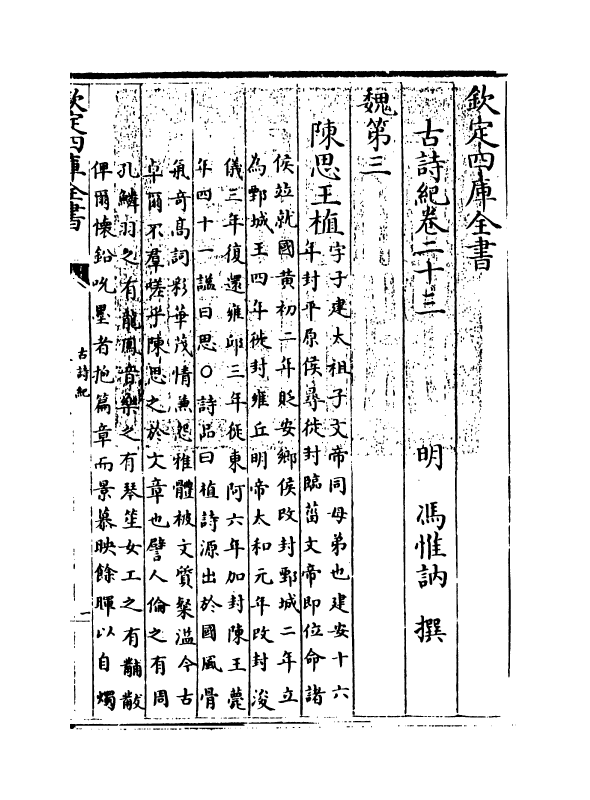 欽定四庫全書
古詩紀卷二十三
明 馮惟訥 撰
魏第三
陳思王植
字子建太祖子文帝同母弟也建安十六
年封平原侯尋徙封臨菑文帝即位命諸
侯竝就國黄初二年貶安鄉侯改封鄄城二年立
為鄄城王四年徙封雍丘明帝太和元年改封浚
儀三年復還雍邱三年徙東阿六年加封陳王薨
年四十一諡曰思○詩品曰植詩源出於國風骨
氣竒髙詞彩華茂情兼怨雅體被文質粲溢今古
卓爾不羣嗟乎陳思之於文章也譬人倫之有周
孔鱗羽之有龍鳳音樂之有琴笙女工之有黼黻
俾爾懷鉛吮墨者抱篇章而景慕映餘暉以自燭
欽定四庫全書
古詩紀
一